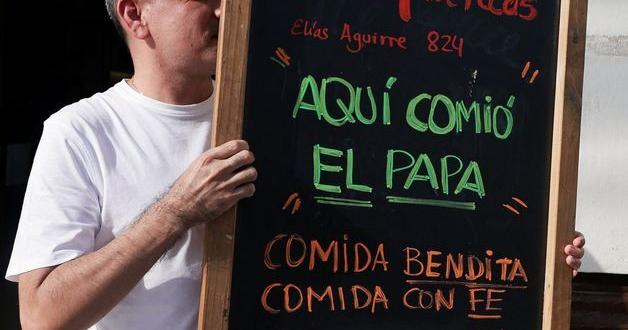 Elías Aguirre 824
AQUÍ COMIÓ
EL PAPA
COMIDA BENDITA
COMIDA CON FE